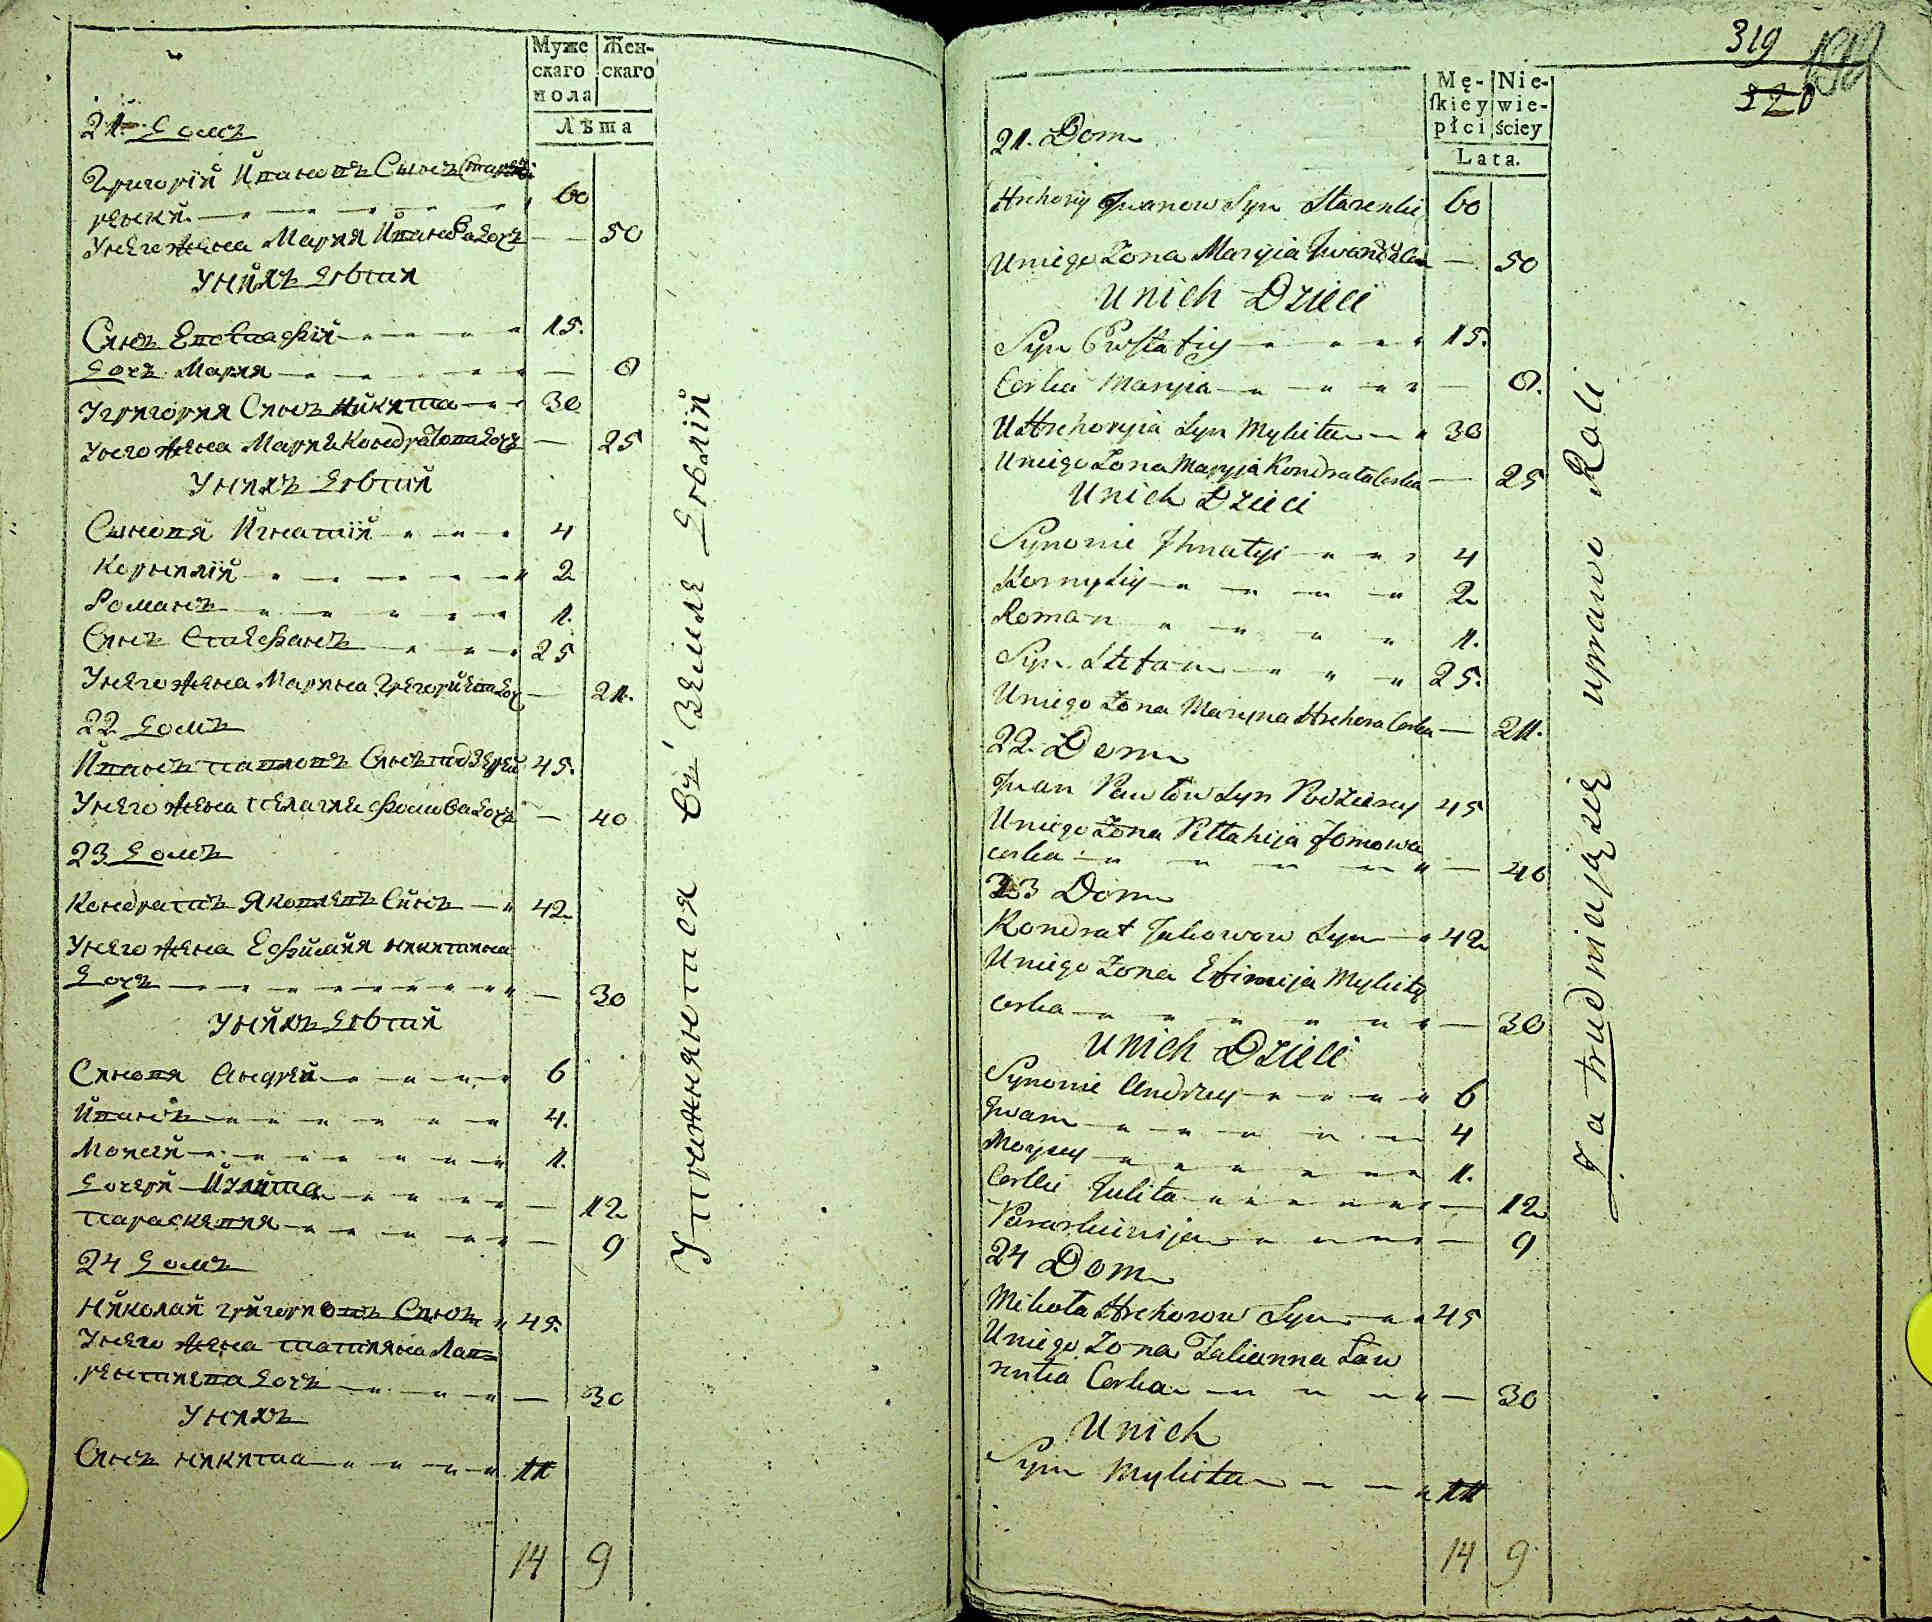 Муже
скаго
пола
Жен-
скаго
Лѣта
21 Домъ
Григорій Ивановъ Сынъ Старѣ-
ренкій 60
У него жена Мария Иванова дочь 50
У нихъ Дѣтий
Сынъ Евстафій 15.
Дочь Мария 8
У Григория Сынъ Никита 30
У него жена Мария Кондратова дочь 25
У нихъ Дѣтий
Сыновя Игнатій 4
Корнилій 2
Романъ 1.
Сынъ Стефанъ 25
У него жена Марина Григориева доч 21.
22 Домъ
Иванъ павловъ Сынъ подзерей 45.
У него жена пелагия Фомова дочь 40
23 Домъ
Кондратъ Яковлевъ Сынъ 42
У него жена Ефимия никитина
Дочь 30
У нихъ Дѣтий
Сыновя Андрей 6
Иванъ 4.
Мойсей 1.
Дочери Иулита 12
параскевия 9
24 Домъ
Николай григориовъ Сынъ 45.
У него жена татияна Лав-
рентиева дочь 30
У нихъ
Сынъ никита 11
14 9
Упражняются въ Земле Делiй
319
320
Mę-
skiey
płci
Nie-
wie-
ściey
Lata.
21. Dom
Hrehory Jwanow Syn Starenki 60
U niego Zona Maryia Jwan Corka 50
U nich Dzieci
Syn Ewstafiy 15.
Corka Maryia 8.
U Hrehoryia Syn Mykita 30
U niego Zona Maryja Kondrata Corka 25
U nich Dzieci
Synowie Jhnatyi 4
Kornyliy 2
Roman 1.
Syn Stefan 25.
U niego Zona Maryna Hrehora Corka 21.
22. Dom
Jwan Pawłow Syn Podzierey 45
U niego Zona Pellahija Fomowa
corka 40
23 Dom
Kondrat Jakowow Syn 42
U niego Zona Efimija Mykity
corka 30
U nich Dzieci
Synowie Andrzey 6
Jwan 4
Moysey 1.
Corki Julita 12
Paraskiewija 9
24 Dom
Mikoła Hrehorow Syn 45
U niego Zona Talianna Ław
rentia Corka 30
U nich
Syn Mykita 11
14 9
Zatrudniają się uprawi Roli